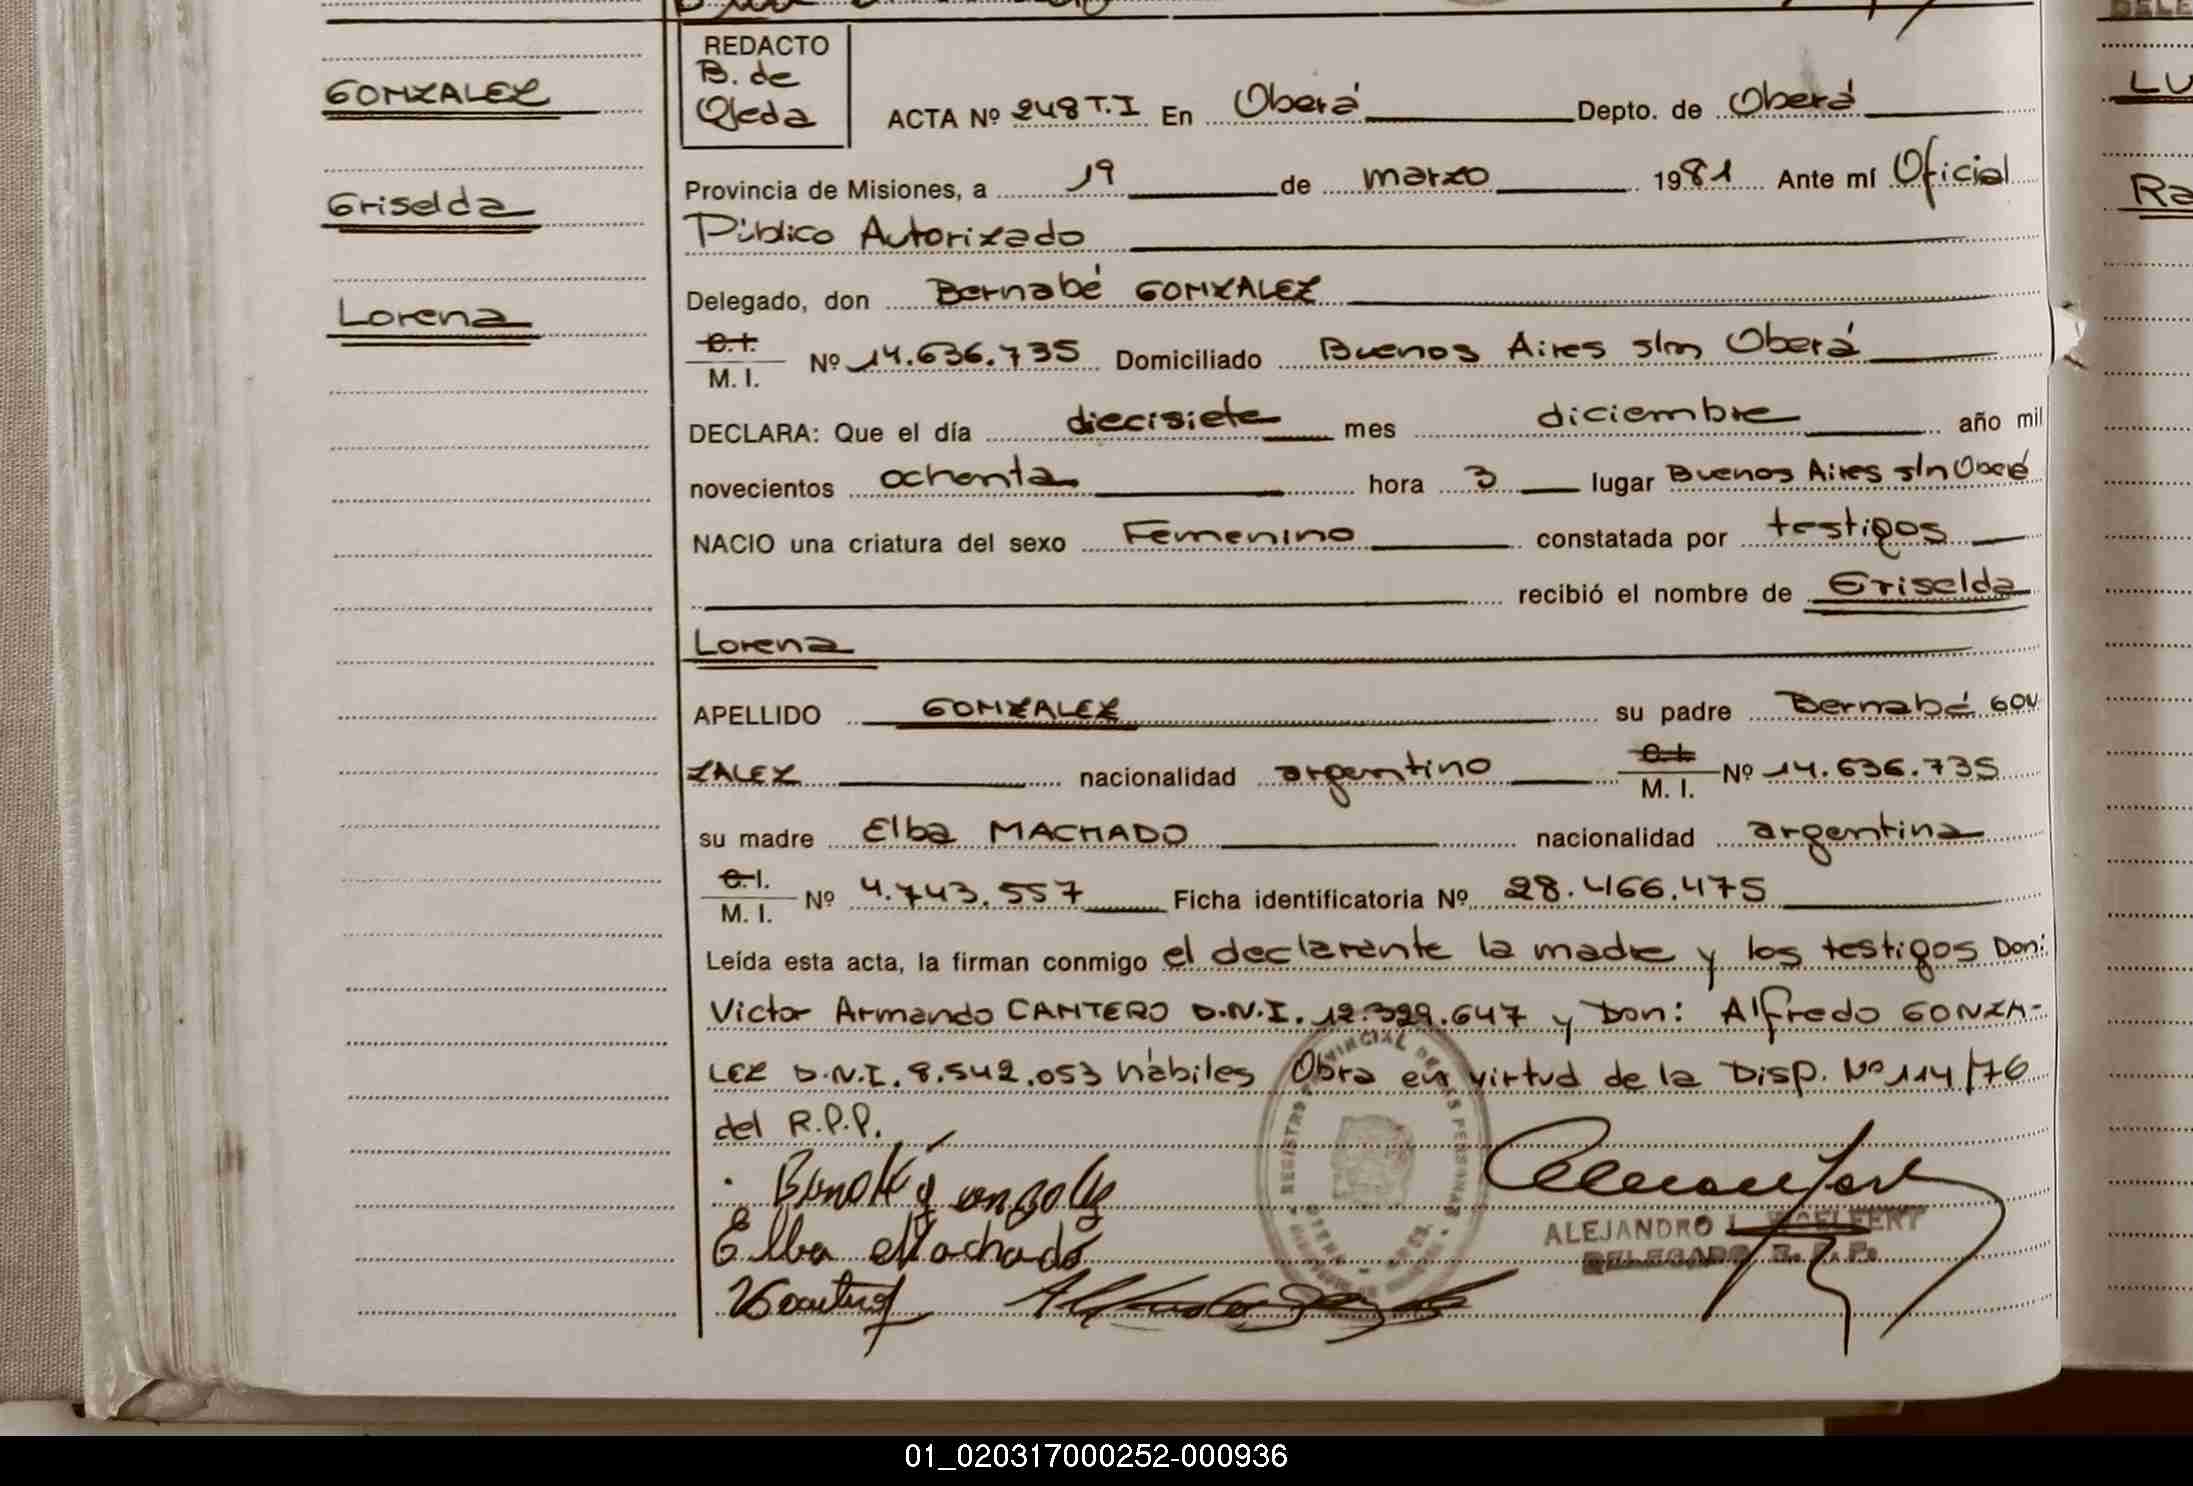 GONZALEZ
Griselda
Lorena
REDACTO
B. de
Ojeda
ACTA Nº 248 T.I En Oberá Depto. de Oberá
Provincia de Misiones, a 19 de marzo 1981 Ante mí Oficial
Público Autorizado
Delegado, don Bernabé GONZALEZ
C.I.
M. I. Nº 14.636.735 Domiciliado Buenos Aires s/n Oberá
DECLARA: Que el día diecisiete mes diciembre año mil
novecientos ochenta hora 3 lugar Buenos Aires s/n Oberá
NACIO una criatura del sexo Femenino constatada por testigos
recibió el nombre de Griselda
Lorena
APELLIDO GONZALEZ su padre Bernabé GON
ZALEZ nacionalidad argentino C.I. M. I. Nº 14.636.735
su madre Elba MACHADO nacionalidad argentina
C.I.
M. I. Nº 4.743.557 Ficha identificatoria Nº 28.466.475
Leída esta acta, la firman conmigo el declarante la madre y los testigos Don:
Victor Armando CANTERO D.N.I. 12.329.647 y Don: Alfredo GONZA-
LEZ D.N.I. 8.542.053 hábiles Obra en virtud de la Disp. Nº 114/76
del R.P.P.
Elba Machado
ALEJANDRO
DELEGADO R. P. P.
LU
Ra
01_020317000252-000936